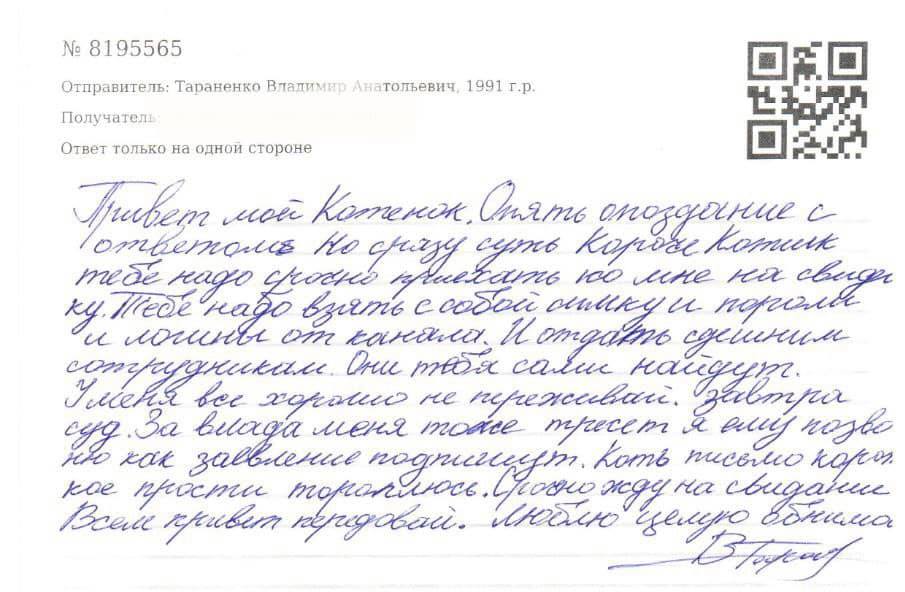 № 8195565
Отправитель: Тараненко Владимир Анатольевич, 1991 г.р.
Получатель:
Ответ только на одной стороне
Привет мой Котенок. Опять опоздание с
ответом. Но сразу суть Короче Котик
тебе надо срочно приехать ко мне на свида
ку. Тебе надо взять с собой симку и пороли
и логины от канала. И отдать сдешним
сотрудникам. Они тебя сами найдут.
У меня все хорошо не переживай. Завтра
суд. За влада меня тоже тресет я ему позво
ню как заевление подпишут. Коть письмо корот
кое прости тороплюсь. Срочно жду на свидании
Всем привет передовай. Люблю целую обнима